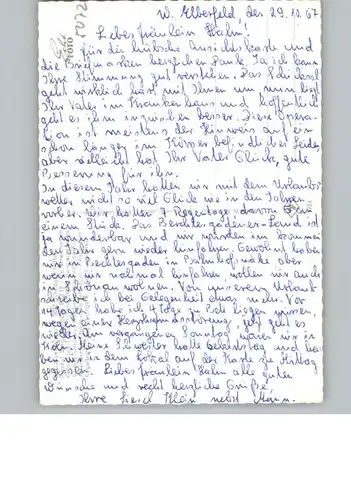 W. Elberfeld, den 29.10.67
Liebes Fräulein Hahn!
Für die hübsche Ansichtskarte und
die Briefmarken herzlichen Dank. Ja ich kann
Ihre Stimmung gut verstehen. Das Schicksal
geht wirklich hart mit Ihnen um nun liegt
Ihr Vater im Krankenhaus und hoffentlich
geht es ihm inzwischen besser. Diese Opera-
tion ist meistens der Hinweis auf ein
schon länger im Körper befindliches Leiden,
aber vielleicht hat Ihr Vater Glück, gute
Besserung für ihn.
In diesem Jahr hatten wir mit dem Urlaubs
wetter nicht so viel Glück wie in den Jahren
vorher. Wir hatten 7 Regentage davon
einem Stück. Das Berchtesgadener-Land ist
ja wunderbar und wir würden im kommen
den Jahr gern wieder hinfahren. Gewohnt haben
wir in Berchtesgaden in Bahnhofsnähe aber
wenn wir noch mal hinfahren wollen wir auch
in wohnen. Von unserem Urlaub
schreibe ich bei Gelegenheit etwas mehr. Vor
14 Tagen habe ich 4 Tage zu Bett liegen müssen,
wegen einer jetzt geht es
wieder. Am vergangenen Sonntag waren wir in
Köln. Meine Schwester hatte Geburtstag und ha
ben wir in dem Lokal auf der Karte zu Mittag
gegessen. Liebes Fräulein Hahn alle guten
Wünsche und recht herzliche Grüße,
Ihre Liesel Klein nebst Mann.